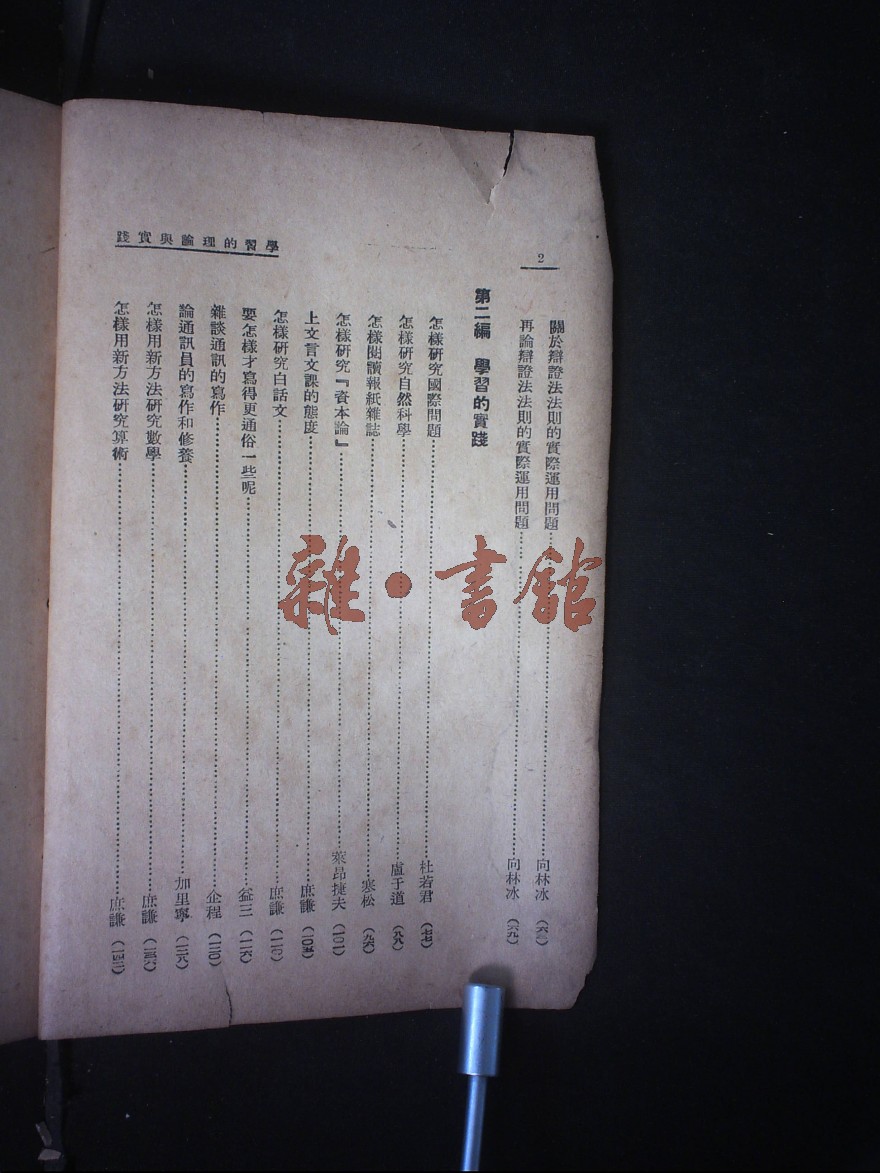 2
關於辯證法法則的實際運用問題 向林冰
再論辯證法法則的實際運用問題 向林冰 (六九)
第二編 學習的實踐
怎樣研究國際問題 杜若君 (七七)
怎樣研究自然科學 盧于道
怎樣閱讀報紙雜誌 寒松
怎樣研究『資本論』 萊昂捷夫 (一〇一)
上文言文課的態度 庶謙
怎樣研究白話文 庶謙
要怎樣才寫得更通俗一些呢 益三
雜談通訊的寫作 企程
論通訊員的寫作和修養 加里寧
怎樣用新方法研究數學 庶謙
怎樣用新方法研究算術 庶謙
學習的理論與實踐
雜·書館